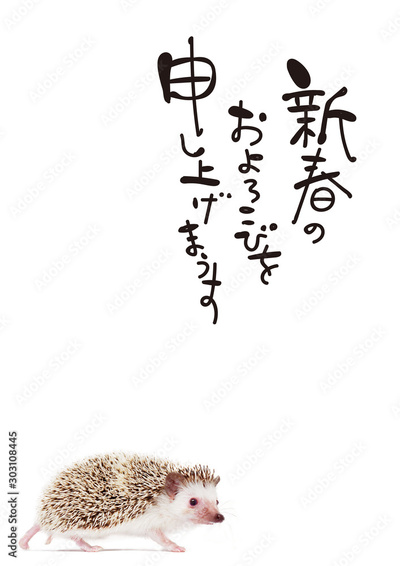 新春の
およろこびを
申し上げまうす
Adobe Stock | #303108445